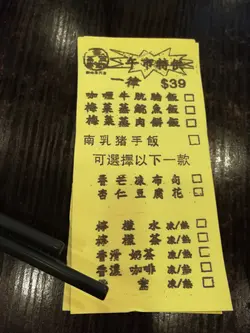 午市特飯
一律 $39
咖喱牛腩飯
梅菜蒸鯇魚飯
梅菜蒸肉餅飯
南乳猪手飯
可選擇以下一款
香芒凍布甸
杏仁豆腐花
檸檬水 凍/熱
檸檬茶 凍/熱
香滑奶茶 凍/熱
香濃咖啡 凍/熱
凍/熱